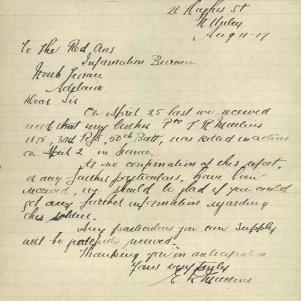 21 Hughes St
N. Unley
Aug 11-17
To The Red Cross
Information Bureau
North Terrace
Adelaide
Dear Sir
On April 25 last we received
word that my brother Pte T R
1875, 3rd Rfts, 50th Batt, was killed in action
on April 2 in France.
As no confirmation of this report,
or any further particulars, have been
received, we should be glad if you could
get any further information regarding
this
Any particulars you can supply
will be gratefully received.
Thanking you in anticipation
Yours very truly
E. K.